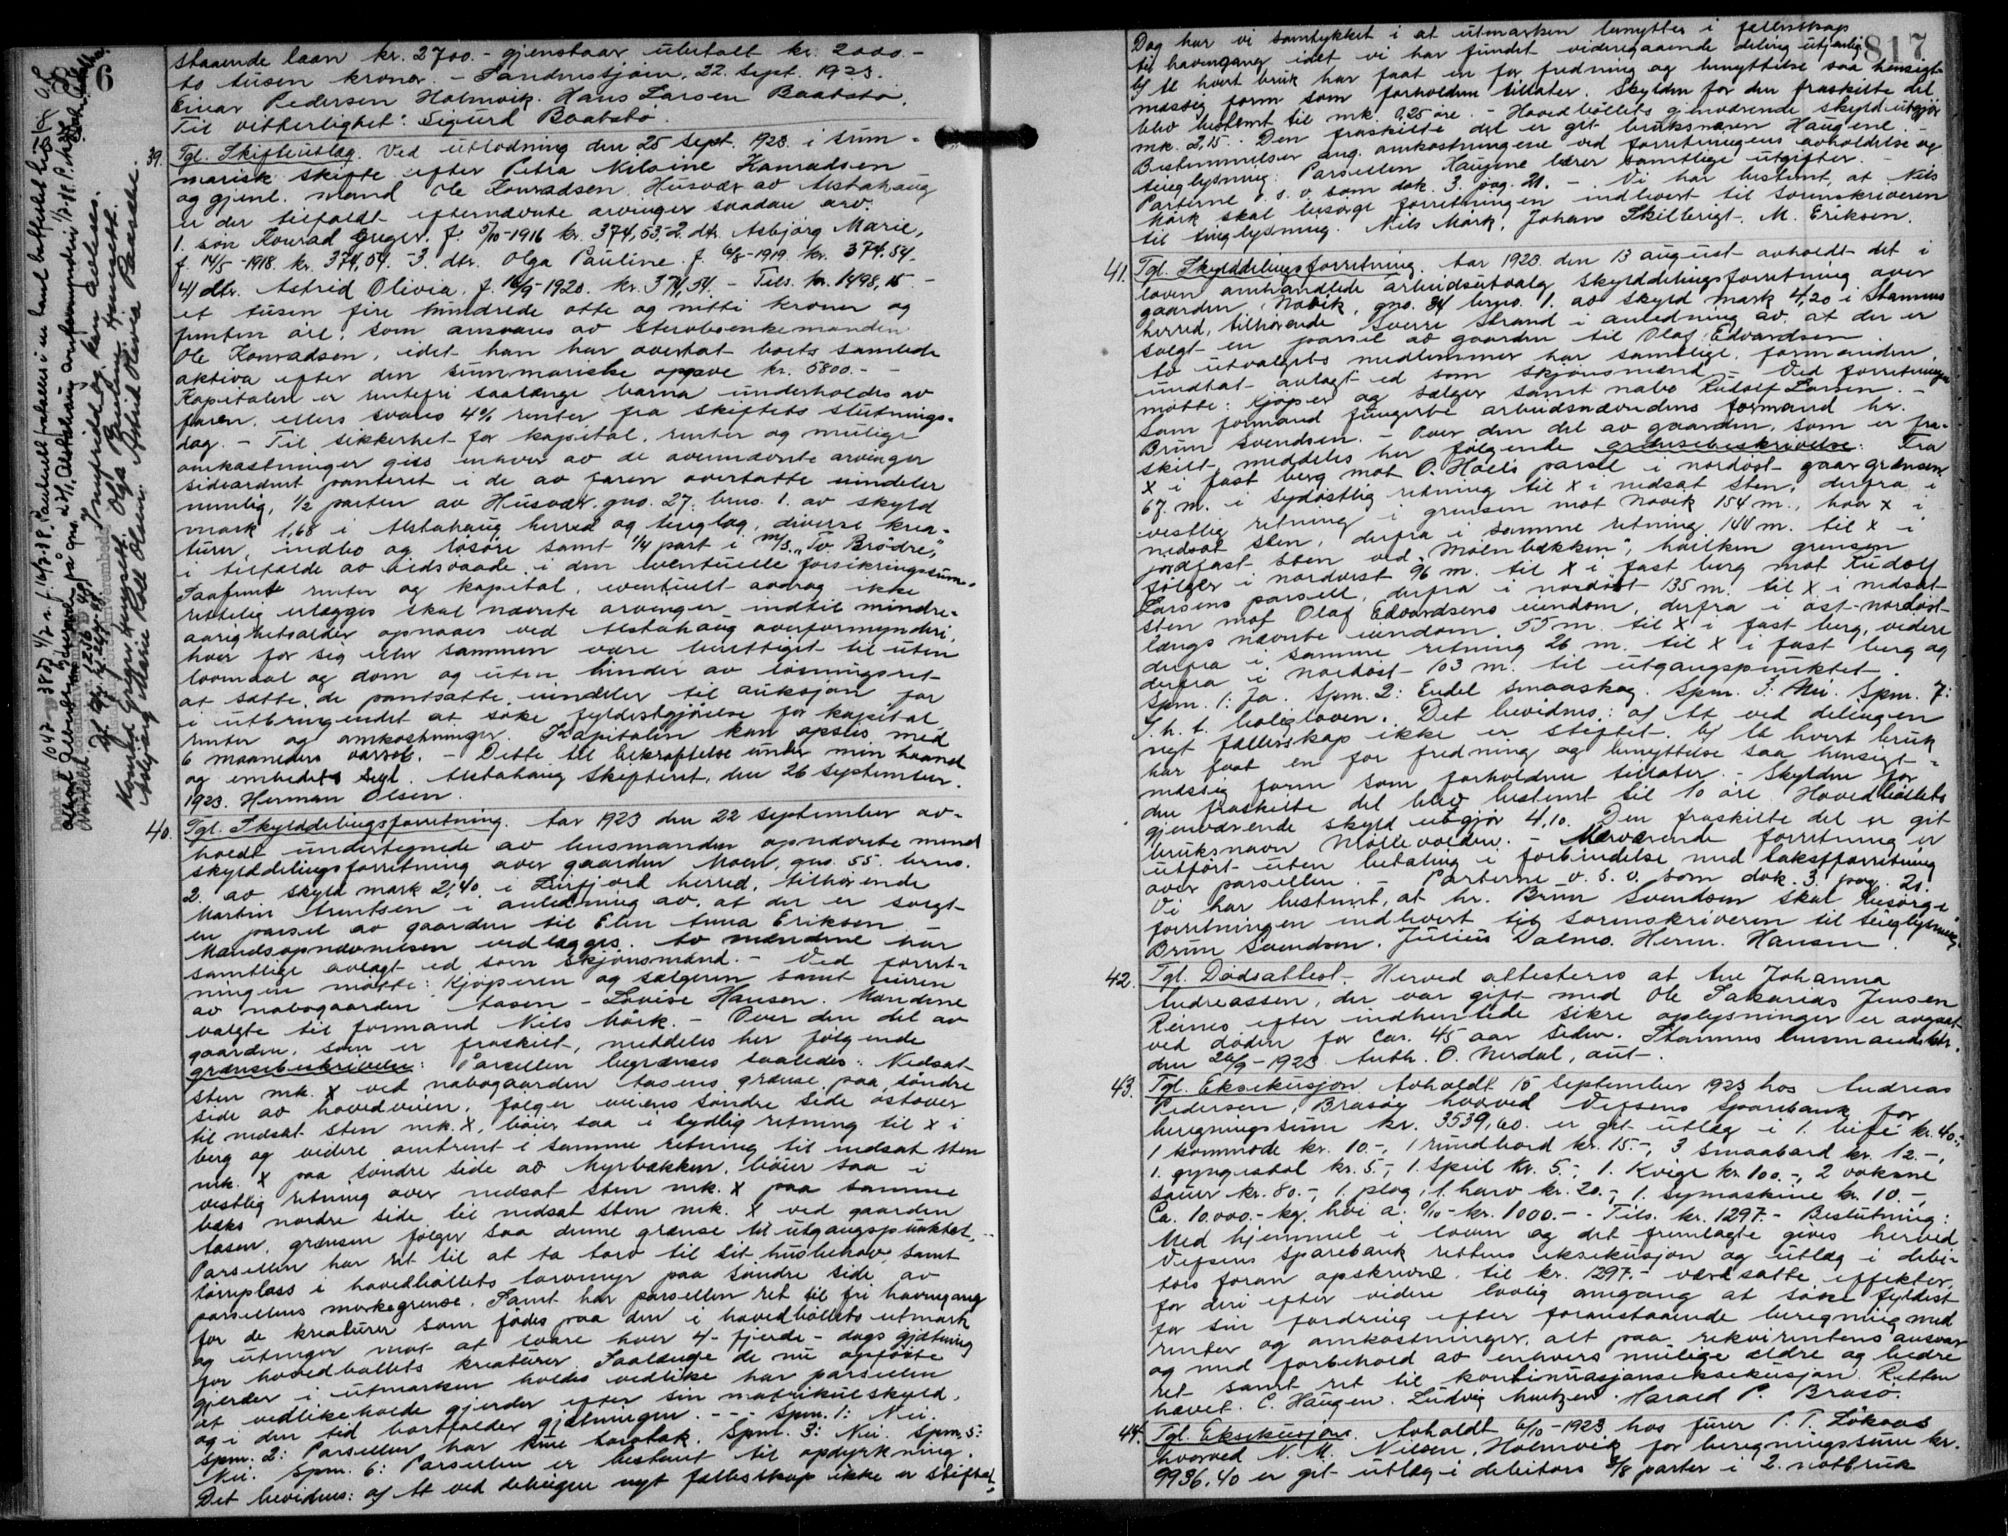 staaende laan kr. 2700.- gjenstaar ubetalt kr. 2000.-
to tusen kroner. - Sandnessjøen, 22. Sept. 1923.
Einar Pedersen Holmvik. Hans Larsen Baatstø.
Til vitterlighet: Sigurd Baatstø.
39. Tgl. Skifteutlæg. Ved utlodning den 25 sept. 1923 i sum-
marisk skifte efter Petra Nilsine Konradsen
og gjenl. mand Ole Konradsen Husvær av Alstahaug
er der tilfaldt efternævnte arvinger saadan arv.
1. søn Konrad Greger, f. 5/10-1916 kr. 374,53,- 2. dtr. Asbjørg Marie,
f. 14/5-1918. kr. 374,54. - 3. dtr. Olga Pauline. f. 6/8-1919. kr. 374.54.
4) dtr. Astrid Olivia. f. 16/9-1920. kr. 374,54. - Tils. kr. 1498,15 -
et tusen fire hundrede otte og nitti kroner og
femten øre, som ansvares av sterbоenkemanden
Ole Konradsen, idet han har overtat boets samlede
aktiva efter den summariske opgave kr. 5800.-
Kapitalen er rentefri saalænge barna underholdes av
faren, ellers svares 4% renter fra skiftets slutnings-
dag. - Til sikkerhet for kapital, renter og mulige
omkostninger gis enhver av de ovennævnte arvinger
sideordnet panteret i de av faren overtatte eiendeler
nemlig, 1/2 parten av Husvær gno. 27. brno. 1. av skyld
mark 1,68 i Alstahaug herred og tinglag, diverse krea-
turer, indbo og løsøre samt 1/4 part i m/s. "To Brødre",
i tilfælde av ildsvaade i den eventuelle forsikringssum.
Saafremt renter og kapital, eventuelt avdrag ikke
rettelig erlægges skal nævnte arvinger indtil mindre-
aarighetsalder opnaaes ved Alstahaug overformynderi,
hver for sig eller sammen være berettiget til uten
lovmaal og dom og uten hinder av løsningsret
at sætte de pantsatte eiendeler til auksjon for
i utbringendet at søke fyldestgjørelse for kapital
renter og omkostninger. Kapitalen kan opsies med
6 maaneders varsel. - Dette til bekræftelse under min haand
og embeds Segl. Alstahaug Skifteret, den 26 september
1923. Herman Olsen.
40. Tgl. Skylddelingsforretning. Aar 1923 den 22 september av-
holdt undertegnede av lensmanden opnævnte mænd
skylddelingsforretning over gaarden Moen, gno. 55. brno.
2. av skyld mark 2,40 i Leirfjord herred, tilhørende
Martin Arentsen i anledning av, at der er solgt
en parsel av gaarden til Elen Anna Eriksen.
Mandsopnævnelsen vedlægges. Av mændene har
samtlige avlagt ed som skjønsmænd. - Ved forret-
ningen møtte: Kjøperen og sælgeren samt eieren
av nabogaarden Aasen - Lovise Hansen. Mændene
valgte til formand Nils Mørk. - Over den del av
gaarden, som er fraskilt, meddeles her følgende
grænsebeskrivelse: Parsellen begrænses saaledes: Nedsat
sten mk. X ved nabogaarden Aasens grænse paa søndre
side av hovedveien, følger veiens søndre side østover
til nedsat sten mk. X, bøier saa i sydlig retning til X i
berg og videre omtrent i samme retning til nedsat sten
mk. X paa søndre side av Myrbækken, bøier saa i
vestlig retning over nedsat sten mk. X paa samme
bæks nordre side til nedsat sten mk. X ved gaarden
Aasen, grænsen følger saa denne grænse til utgangspunktet.
Parsellen har ret til at ta torv til sit husbehov, samt
tørrplass i hovedbøllets torvmyr paa søndre side av
parsellens merkegrense. Samt har parsellen ret til fri havnegang
for de kreaturer som fødes paa den i hovedbøllets utmark
og utenger mot at svare hver 4 - fjerde - dags gjætning
for hovedbøllets kreaturer. Saalænge de nu opførte
gjerder i utmarken holdes vedlike har parsellen
at vedlikeholde gjerder efter sin matrikulskyld,
og i den tid bortfalder gjætningen. - - - Spm. 1: Nei.
Spm. 2: Parsellen har kun torvtak. Spm. 3: Nei. Spm. 5:
Nei. Spm. 6: Parsellen er bestemt til opdyrkning.
Det bevidnes: a) At ved delingen nyt fællesskap ikke er stiftet,
817
Dog har vi samtykket i at utmarken benyttes i fællesskap
til havnegang idet vi har fundet videregaaende deling utjenlig.
b) At hvert bruk har faat en for fredning og benyttelse saa hensigt-
mæssig form som forholdene tillater. Skylden for den fraskilte del
blev bestemt til mk. 0,25 øre. - Hovedbøllets gjenværende skyld utgjør
mk. 2,15. Den fraskilte del er git bruksnavn Haugene. -
Bestemmelser ang. omkostningene ved forretningens avholdelse og
tinglysning: Parsellen Haugene bærer samtlige utgifter. -
Parterne o. s. v. som dok. 3. pag. 21. - Vi har bestemt, at Nils
Mørk skal besørge forretningen indlevert til sorenskriveren
til tinglysning. Nils Mørk, Johan Skillerigt. M. Eriksen.
41. Tgl. Skylddelingsforretning. Aar 1923 den 13 august avholdt det i
loven omhandlede arbeidsutvalg skylddelingsforretning over
gaarden Novik, gno. 34 brno. 1. av skyld mark 4,20 i Stamnes
herred, tilhørende Sverre Strand i anledning av, at der er
solgt en parsel av gaarden til Olaf Edvardsen.
Av utvalgets medlemmer har samtlige, formanden
undtat avlagt ed som skjønsmænd - Ved forretningen
møtte: Kjøper og sælger samt nabo Rudolf Larsen. -
Som formand fungerte arbeidsnævndens formand hr.
Brun Svendsen. - Over den del av gaarden, som er fra-
skilt, meddeles her følgende grænsebeskrivelse: Fra
X i fast berg mot O. Høels parsel i nordøst gaar grænsen
67. m. i sydøstlig retning til X i nedsat sten, derfra i
vestlig retning i grensen mot Novik 154 m., hvor X i
nedsat sten, derfra i samme retning 140 m. til X i
jordfast sten ved "Mølnbækken", hvilken grensen
følger i nordvest 96 m. til X i fast berg mot Rudolf
Larsens parsell, derfra i nordøst 135 m. til X i nedsat
sten mot Olaf Edvardsens eiendom, derfra i øst-nordøst
langs nævnte eiendom 55 m. til X i fast berg, videre
derfra i samme retning 26 m. til X i fast berg og
derfra i nordøst 103 m. til utgangspunktet.
Spm. 1: Ja. Spm. 2: Endel smaaskog. Spm. 3: Nei. Spm. 7:
I. h. t. boligloven. Det bevidnes: a) At ved delingen
nyt fællesskap ikke er stiftet. b) At hvert bruk
har faat en for fredning og benyttelse saa hensigt-
mæssig form som forholdene tillater. - Skylden for
den fraskilte del blev bestemt til 10 øre. Hovedbøllets
gjenværende skyld utgjør 4,10. Den fraskilte del er git
bruksnavn Møllevolden. - Nærværende forretning er
utført uten betaling i forbindelse med takstforretning
over parsellen. - Parterne o. s. v. som dok. 3. pag. 21.
Vi har bestemt, at hr. Brun Svendsen skal besørge
forretningen indlevert til sorenskriveren til tinglysning.
Brun Svendsen. Julius Dalmo. Herm. Hansen.
42. Tgl. Dødsattest. Herved attesteres at Ane Johanna
Andreassen, der var gift med Ole Sakarias Jensen
Reines efter indhentede sikre oplysninger er avgaat
ved døden for ca. 45 aar siden. Stamnes lensmandsktr.
den 26/9-1923. Anth. O. Nerdal, aut.
43. Tgl. Eksekusjon. Avholdt 15 September 1923 hos Andreas
Pedersen, Brasøy hvorved Vefsens Sparebank for
beregningssum kr. 3539,60. er git utlæg i 1. bifé kr. 40.-,
1 kommode kr. 10.-, 1 rundbord kr. 15.-, 3 smaabord kr. 12.-,
1. gyngestol kr. 5.-, 1. speil kr. 5.-, 1. Kvige kr. 100.-, 2 voksne
sauer kr. 80.-, 1. plog, 1. harv kr. 20.-, 1. symaskine kr. 10.-,
Ca. 10.000.- kg. høi a. 0/10 - kr. 1000.- - Tils. kr. 1297.- Beslutning:
Med hjemmel i loven og det fremlagte gives herved
Vefsens Sparebank rettens eksekusjon og utlæg i debi-
tors foran opskrevne til kr. 1297.- værdsatte effekter,
for deri efter videre lovlig omgang at søke fyldest
for sin fordring efter foranstaaende beregning med
renter og omkostninger, alt paa rekvirentens ansvar
og med forbehold av enhvers mulige ældre og bedre
ret samt ret til kontinuasjonseksekusjon. Retten
hævet. C. Haugen. Ludvig Mentzen. Harald P. Brasø.
44. Tgl. Eksekusjon. Avholdt 6/10-1923 hos fører P. T. Løkaas
hvorved N. M. Nilsen, Holmvik for beregningssum kr.
9936,40 er git utlæg i debitors 3/8 parter i 2. notbruk